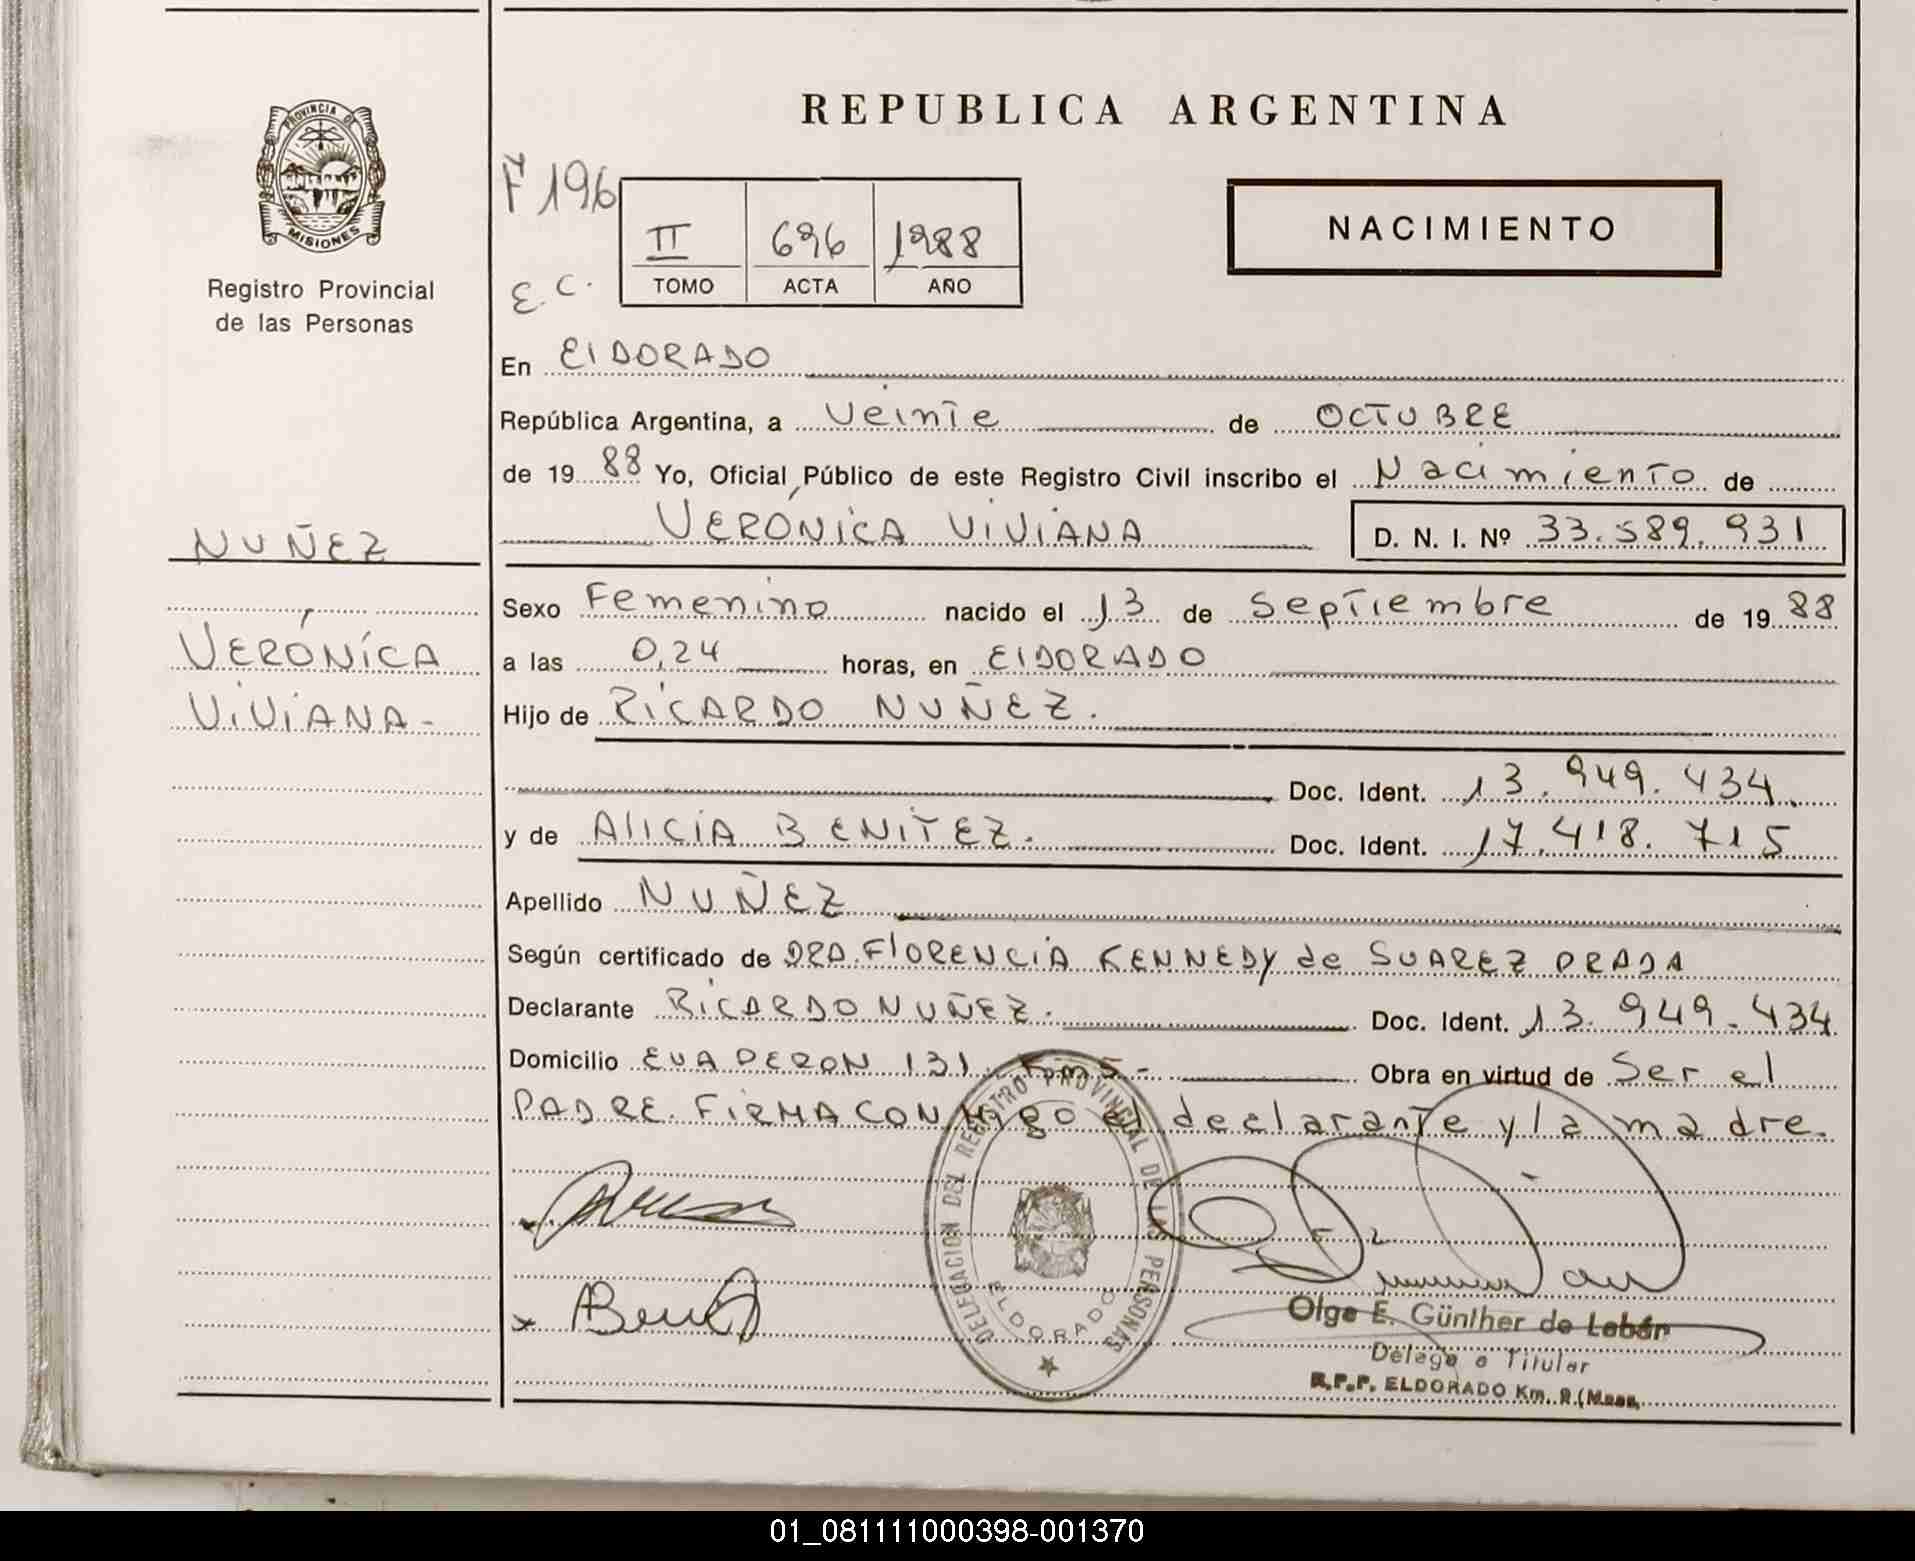 REPUBLICA ARGENTINA
PROVINCIA DE
MISIONES
Registro Provincial
de las Personas
F 196
E.C.
II 696 1988
TOMO ACTA AÑO
NACIMIENTO
En ElDORADO
República Argentina, a Veinte de OCTUBRE
de 1988 Yo, Oficial Público de este Registro Civil inscribo el Nacimiento de
VERÓNICA VIVIANA D. N. I. Nº 33.589.931
NUÑEZ
VERÓNICA
VIVIANA-
Sexo Femenino nacido el 13 de Septiembre de 1988
a las 0,24 horas, en ElDORADO
Hijo de RICARDO NUÑEZ.
Doc. Ident. 13.949.434.
y de AlICIA BENITEZ. Doc. Ident. 17.418.715
Apellido NUÑEZ
Según certificado de DRA. FlORENCIA KENNEDY de SUAREZ PRADA
Declarante RICARDO NUÑEZ. Doc. Ident. 13.949.434
Domicilio EVA PERON 131. Km5.- Obra en virtud de Ser el
PADRE. FIRMA CONMigo el declarante y la madre.
DELEGACION DEL REGISTRO PROVINCIAL DE LAS PERSONAS
ELDORADO
ABenitez
Olga E. Günther de Lebán
Delega a Titular
R.P.P. ELDORADO Km. 9 (Mnes.
01_081111000398-001370